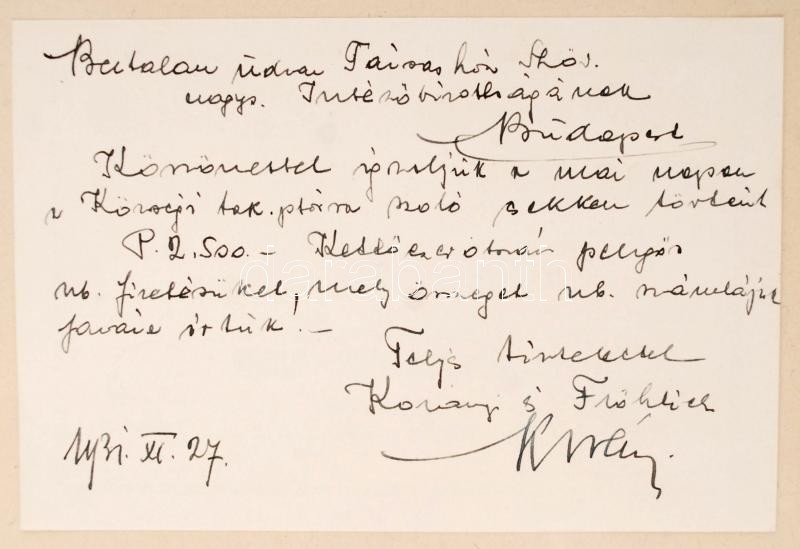 Bertalan udvar Társasház Szöv.
nagys. Intézőbizottságának
Budapest
Köszönettel igazoljuk a mai napon
a Községi tak.ptárra szóló csekken történt
P. 2.500.- Kettőezerötszáz pengős
nb. fizetésüket, mely összeget nb. számlájuk
javára írtuk! –
Telj. tisztelettel
Korányi és Fröhlich
931. XI. 27.
darabanth